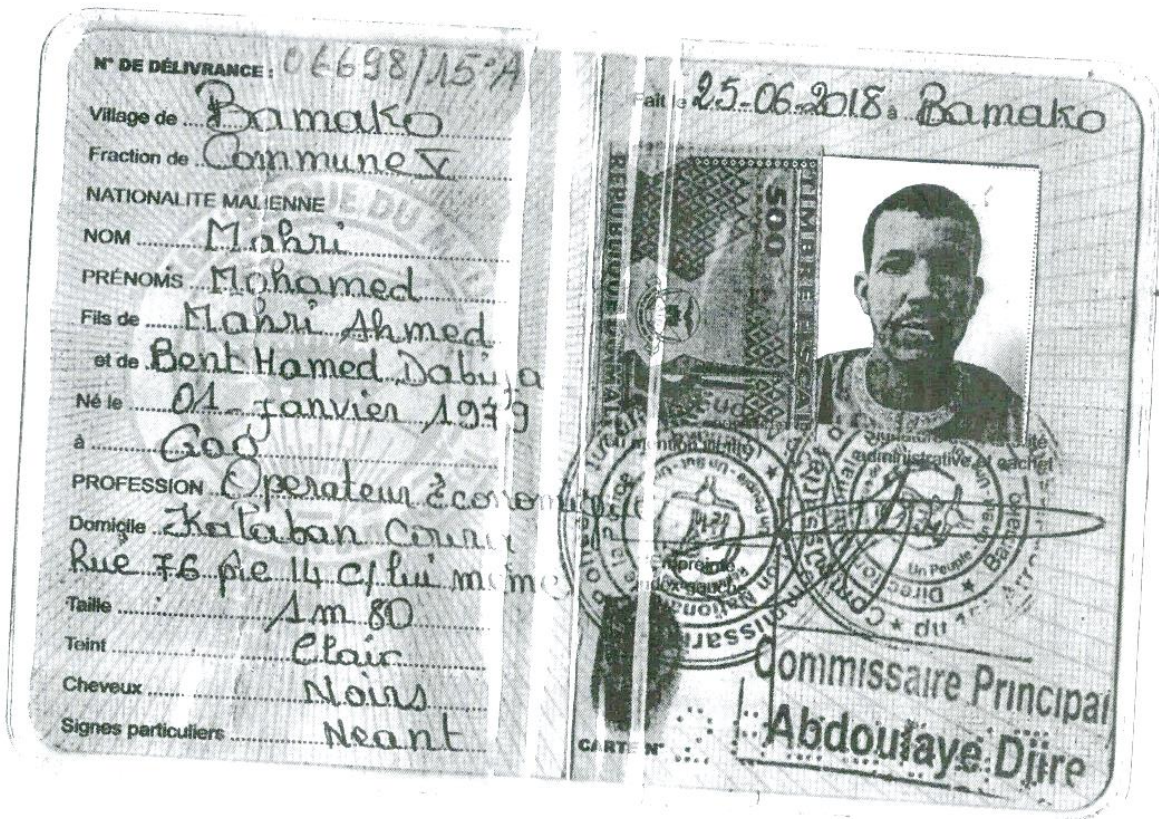 N° DE DÉLIVRANCE : 06698/15°A
Village de Bamako
Fraction de Commune V
NATIONALITE MALIENNE
NOM Mahri
PRÉNOMS Mohamed
Fils de Mahri Ahmed
et de Bent Hamed Dabuja
Né le 01 - janvier 1979
à Gao
PROFESSION Operateur Economique
Domicile Kalaban Coura
Rue 76 pte 14 c/ lui meme
Taille 1m 80
Teint Clair
Cheveux Noirs
Signes particuliers Neant
Fait le 25-06-2018 à Bamako
REPUBLIQUE DU MALI
500
TIMBRE FISCAL
administrative et cachet
Empreinte
index gauche
Un Peuple - Un But - Un
Bamako
Direction
Commissaire Principal
Abdoulaye Djire
CARTE N°